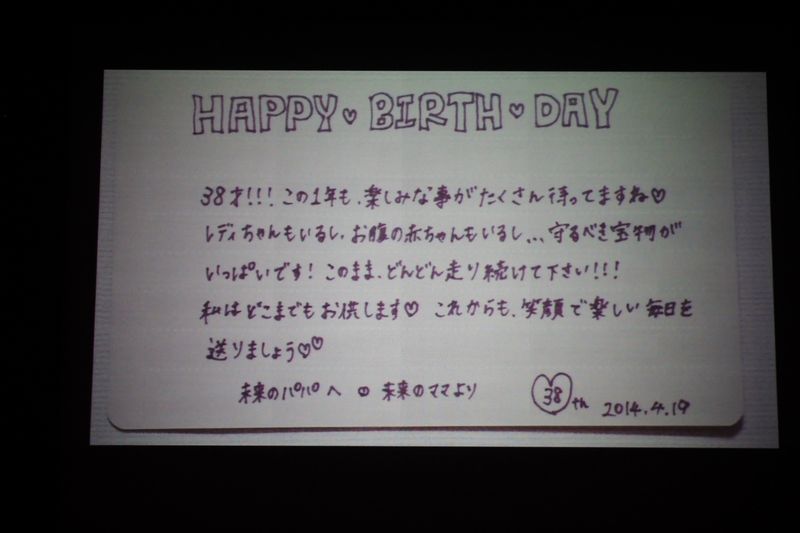 HAPPY♡BIRTH♡DAY
38才!!! この1年も、楽しみな事がたくさん待ってますね♡
レディちゃんもいるし、お腹の赤ちゃんもいるし...守るべき宝物が
いっぱいです! このまま、どんどん走り続けて下さい!!!
私はどこまでもお供します♡ これからも、笑顔で楽しい毎日を
送りましょう♡♡
未来のパパへ 未来のママより 38th 2014.4.19